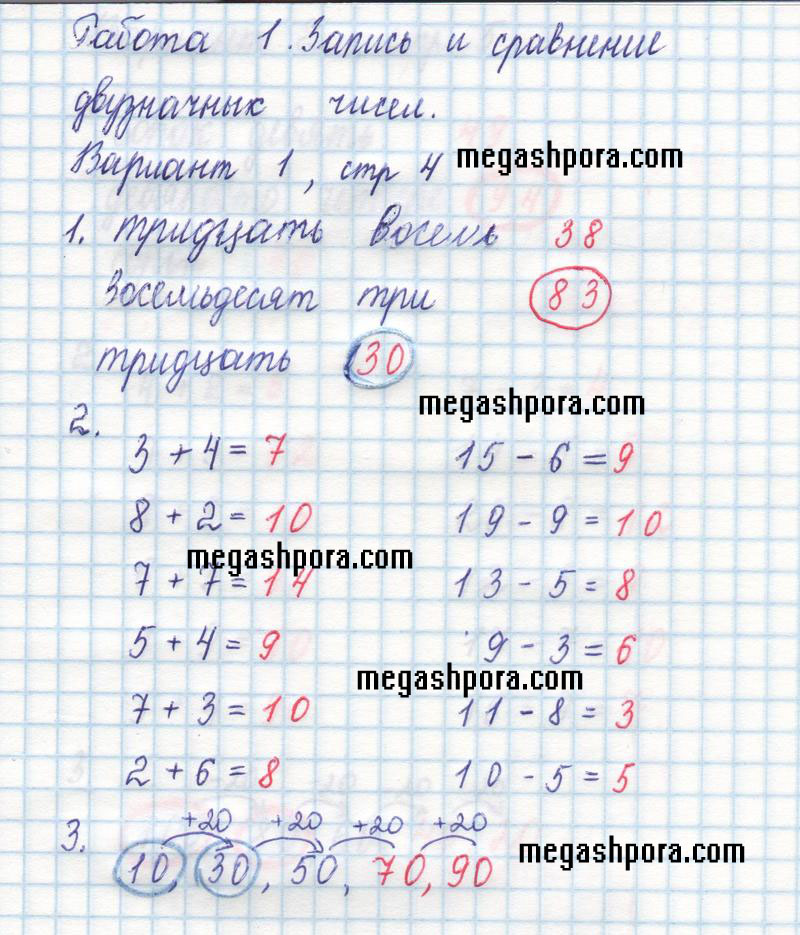 Работа 1. Запись и сравнение
двузначных чисел.
Вариант 1, стр 4 megashpora.com
1. тридцать восемь 38
Восемьдесят три 83
тридцать 30
megashpora.com
2.
3 + 4 = 7 15 - 6 = 9
8 + 2 = 10 19 - 9 = 10
megashpora.com
7 + 7 = 14 13 - 5 = 8
5 + 4 = 9 9 - 3 = 6
megashpora.com
7 + 3 = 10 11 - 8 = 3
2 + 6 = 8 10 - 5 = 5
3. +20 +20 +20 +20
10, 30, 50, 70, 90 megashpora.com